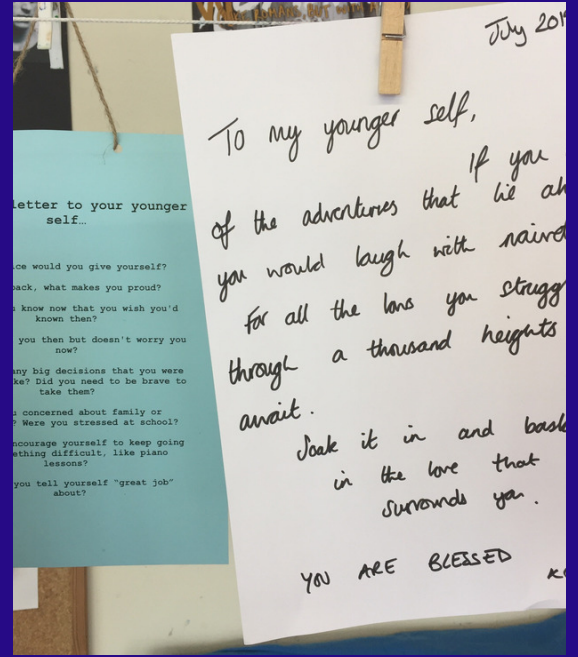 letter to your younger
self…
would you give yourself?
what makes you proud?
know now that you wish you'd
known then?
you then but doesn't worry you
now?
any big decisions that you were
Did you need to be brave to
take them?
concerned about family or
Were you stressed at school?
encourage yourself to keep going
difficult, like piano
lessons?
you tell yourself "great job"
about?
July
To my younger self,
If you
of the adventures that lie
you would laugh with
For all the lows you
through a thousand heights
await.
Soak it in and
in the love that
surrounds you.
YOU ARE BLESSED